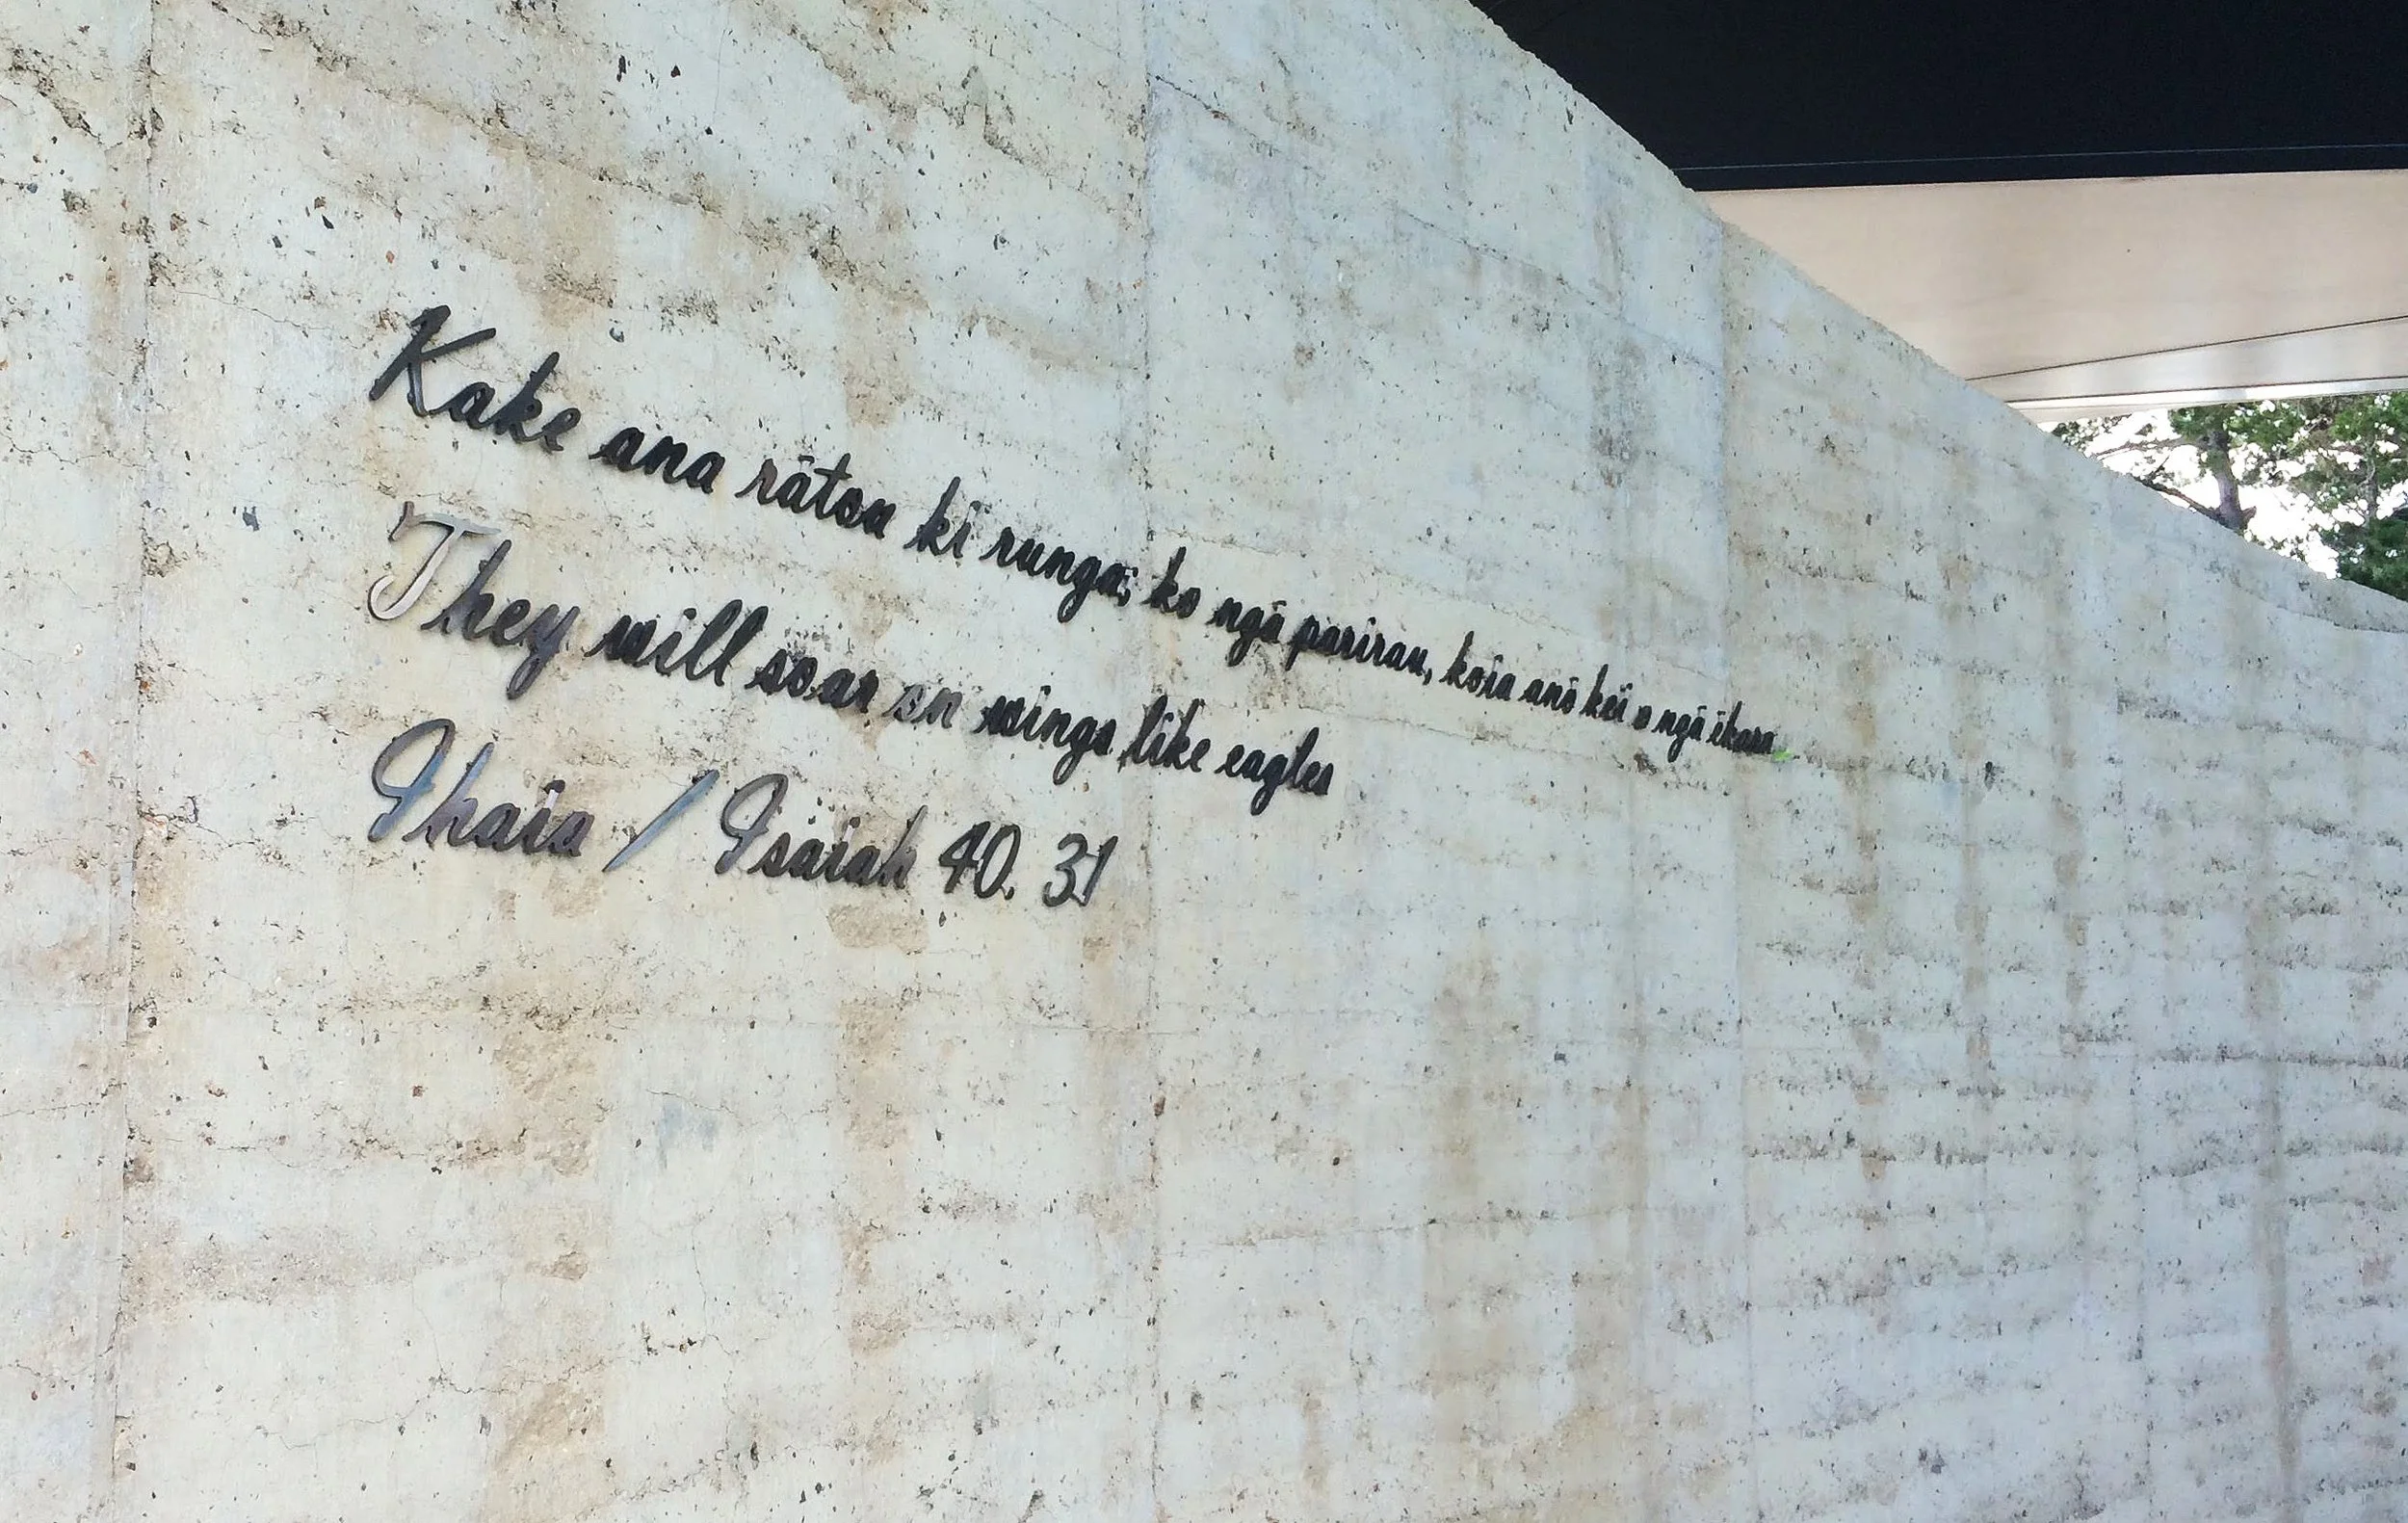 Kake ana rātou ki runga; ko ngā parirau, koia anō kei o ngā ēkara
They will soar on wings like eagles
Ihaia / Isaiah 40. 31